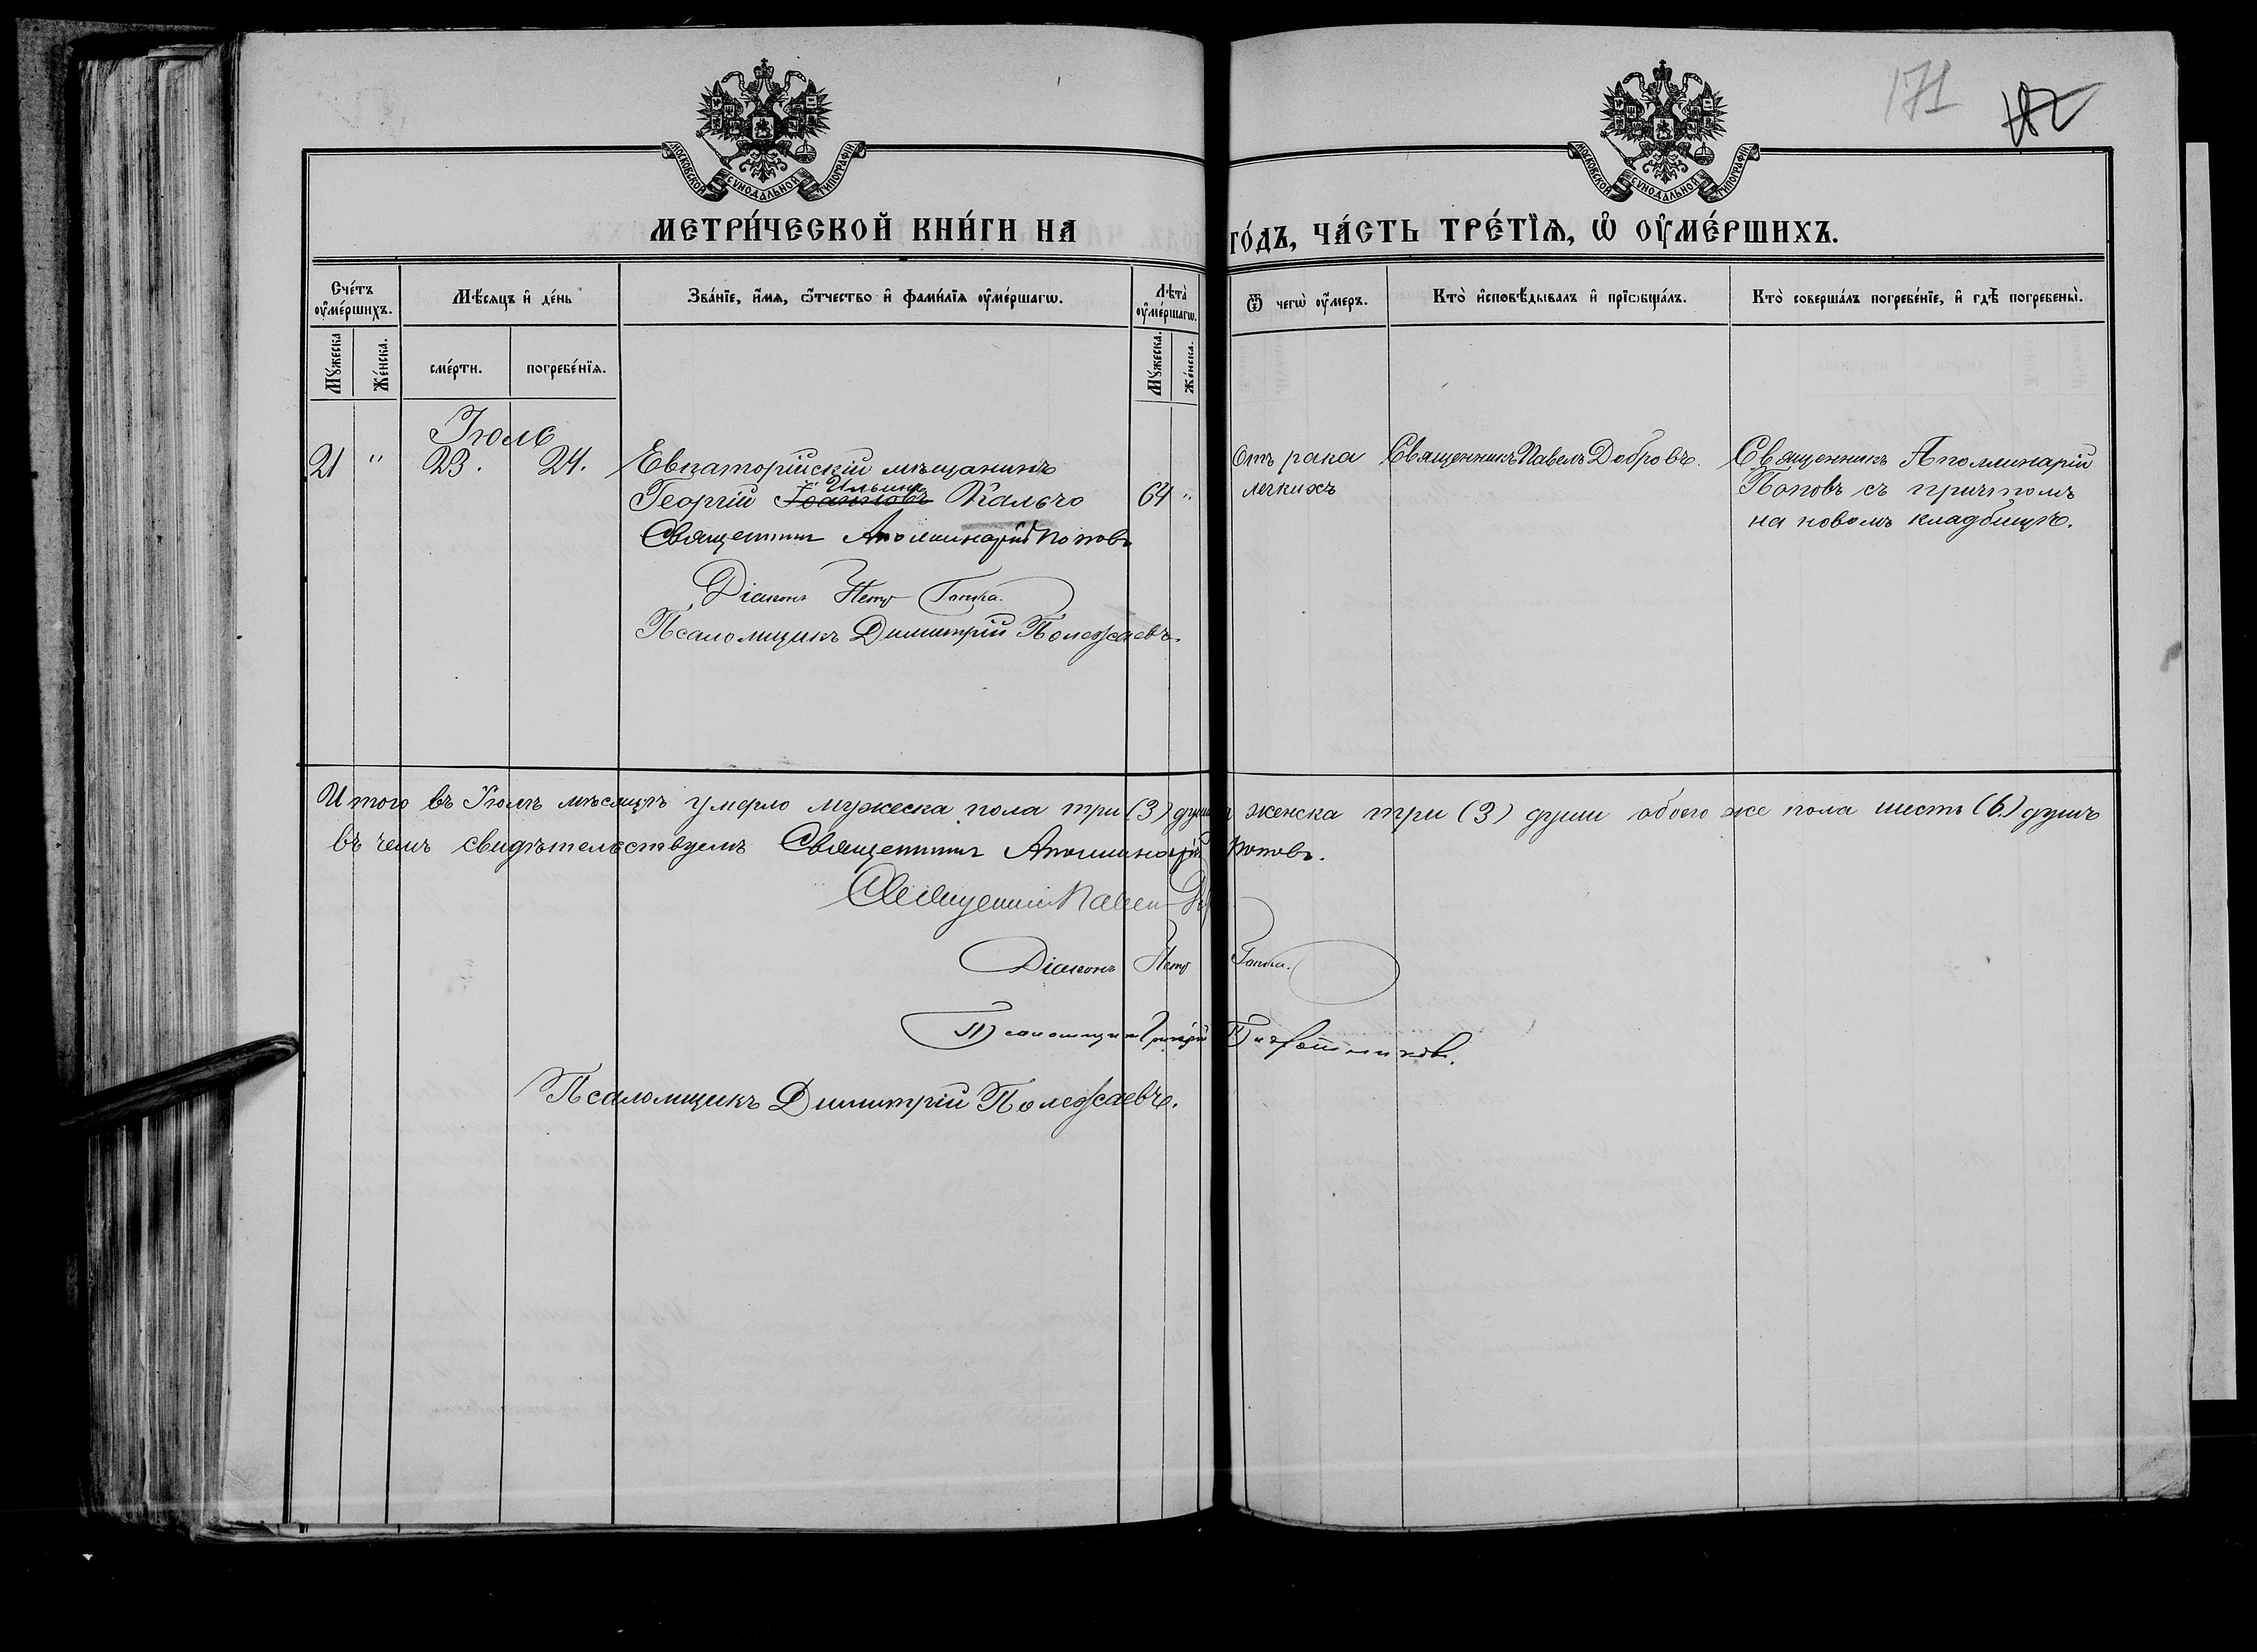 171
182
МОСКОВСКОЙ СѴНОДАЛЬНОЙ ТИПОГРАФІИ
МОСКОВСКОЙ СѴНОДАЛЬНОЙ ТИПОГРАФІИ
МЕТРИ́ЧЕСКОЙ КНИ́ГИ НА ГО́ДЪ, ЧА́СТЬ ТРЕ́ТЇѦ, Ѡ҆ ОУ҆МЕ́РШИХЪ.
Сче́тъ оу҆ме́ршихъ.
Мꙋ́жеска
Же́нска.
Мѣ́сяцъ и҆ де́нь
сме́рти.
погребе́нїя.
Зва́нїе, и҆́мя, ѻ҆́тчество и҆ фами́лїя оу҆ме́ршагѡ.
Лѣта̀ оу҆ме́ршагѡ.
Мꙋ́жеска.
Же́нска.
Ѿ чегѡ̀ оу҆́меръ.
Кто̀ и҆сповѣ́дывалъ и҆ прїѻбща́лъ.
Кто̀ соверша́лъ погребе́нїе, и҆ гдѣ̀ погребены̀.
Іюль
21 " 23. 24. Евпаторійскій мѣщанинъ
Ильинъ
Георгій Іоанновъ Кальчо 64 "
Священникъ Аполлинарій Поповъ
Діаконъ Петръ
Псаломщикъ Димитрій Полежаевъ.
Отъ рака
легкихъ
Священникъ Павелъ Добровъ.
Священникъ Аполлинарій
Поповъ съ причтомъ
на новомъ кладбищѣ.
Итого въ Іюлѣ мѣсяцѣ умерло мужеска пола три (3) души женска три (3) души обоего же пола шесть (6) душъ
въ чемъ свидѣтельствуемъ Священникъ Аполлинарій Поповъ.
Священникъ Павелъ
Діаконъ Петръ
Псаломщикъ Григорій
Псаломщикъ Димитрій Полежаевъ.